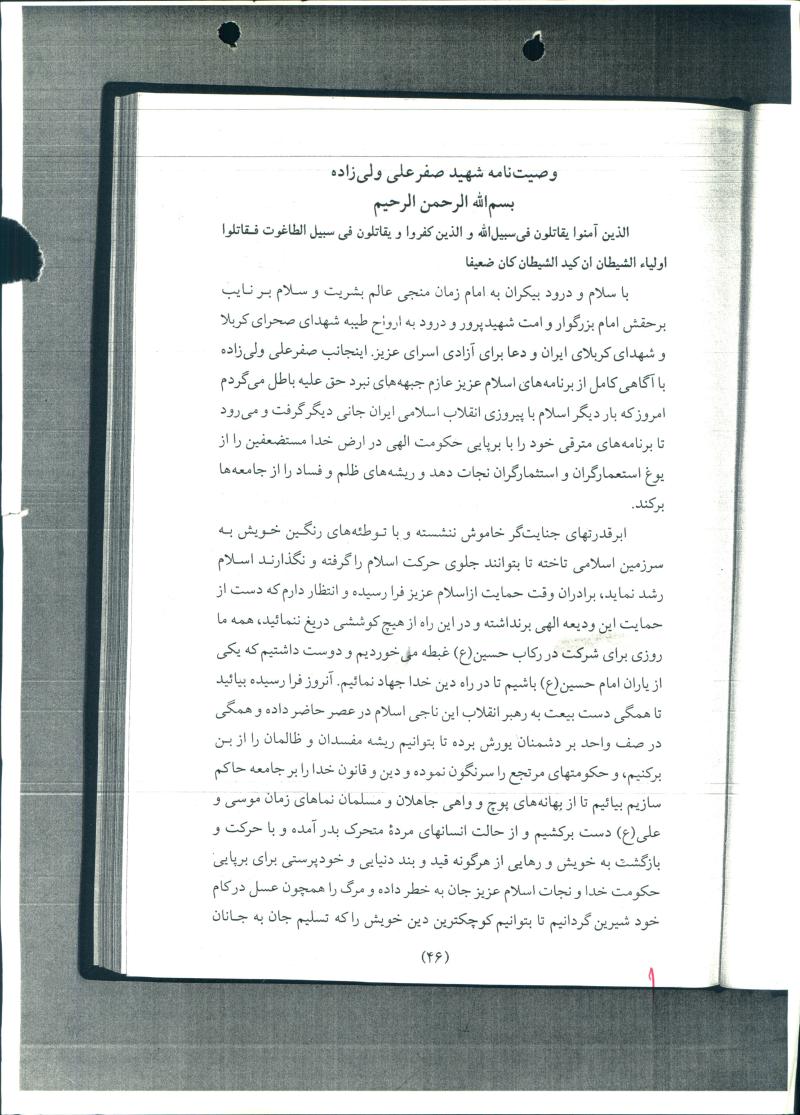 وصیت‌نامه شهید صفرعلی ولی‌زاده
بسم‌الله الرحمن الرحیم
الذین آمنوا یقاتلون فی‌سبیل‌الله و الذین کفروا و یقاتلون فی سبیل الطاغوت فـقاتلوا
اولیاء الشیطان ان کید الشیطان کان ضعیفا
با سلام و درود بیکران به امام زمان منجی عالم بشریت و سـلام بـر نـایب
برحقش امام بزرگوار و امت شهیدپرور و درود به ارواح طیبه شهدای صحرای کربلا
و شهدای کربلای ایران و دعا برای آزادی اسرای عزیز. اینجانب صفرعلی ولی‌زاده
با آگاهی کامل از برنامه‌های اسلام عزیز عازم جبهه‌های نبرد حق علیه باطل می‌گردم
امروز که بار دیگر اسلام با پیروزی انقلاب اسلامی ایران جانی دیگر گرفت و می‌رود
تا برنامه‌های مترقی خود را با برپایی حکومت الهی در ارض خدا مستضعفین را از
یوغ استعمارگران و استثمارگران نجات دهد و ریشه‌های ظلم و فساد را از جامعه‌ها
برکند.
ابرقدرتهای جنایت‌گر خاموش ننشسته و با تـوطئه‌های رنگـین خـویش بـه
سرزمین اسلامی تاخته تا بتوانند جلوی حرکت اسلام را گرفته و نگذارنـد اسـلام
رشد نماید، برادران وقت حمایت ازاسلام عزیز فرا رسیده و انتظار دارم که دست از
حمایت این ودیعه الهی برنداشته و در این راه از هیچ کوششی دریغ ننمائید، همه ما
روزی برای شرکت در رکاب حسین(ع) غبطه می‌خوردیم و دوست داشتیم که یکی
از یاران امام حسین(ع) باشیم تا در راه دین خدا جهاد نمائیم. آنروز فرا رسیده بیائید
تا همگی دست بیعت به رهبر انقلاب این ناجی اسلام در عصر حاضر داده و همگی
در صف واحد بر دشمنان یورش برده تا بتوانیم ریشه مفسدان و ظالمان را از بـن
برکنیم، و حکومتهای مرتجع را سرنگون نموده و دین و قانون خدا را بر جامعه حاکم
سازیم بیائیم تا از بهانه‌های پوچ و واهی جاهلان و مسلمان نماهای زمان موسی و
علی(ع) دست برکشیم و از حالت انسانهای مردهٔ متحرک بدر آمده و با حرکت و
بازگشت به خویش و رهایی از هرگونه قید و بند دنیایی و خودپرستی برای برپایی
حکومت خدا و نجات اسلام عزیز جان به خطر داده و مرگ را همچون عسل در کام
خود شیرین گردانیم تا بتوانیم کوچکترین دین خویش را که تسلیم جان به جـانان
(۴۶)